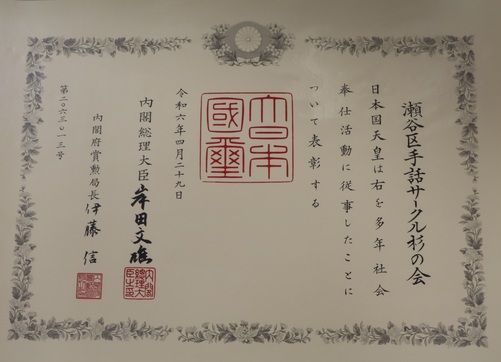 瀬谷区手話サークル杉の会
日本国天皇は右を多年社会
奉仕活動に従事したことに
ついて表彰する
大日本
國璽
令和六年四月二十九日
内閣総理大臣 岸田文雄
内閣府賞勲局長 伊藤信
第二〇六三〇一三号